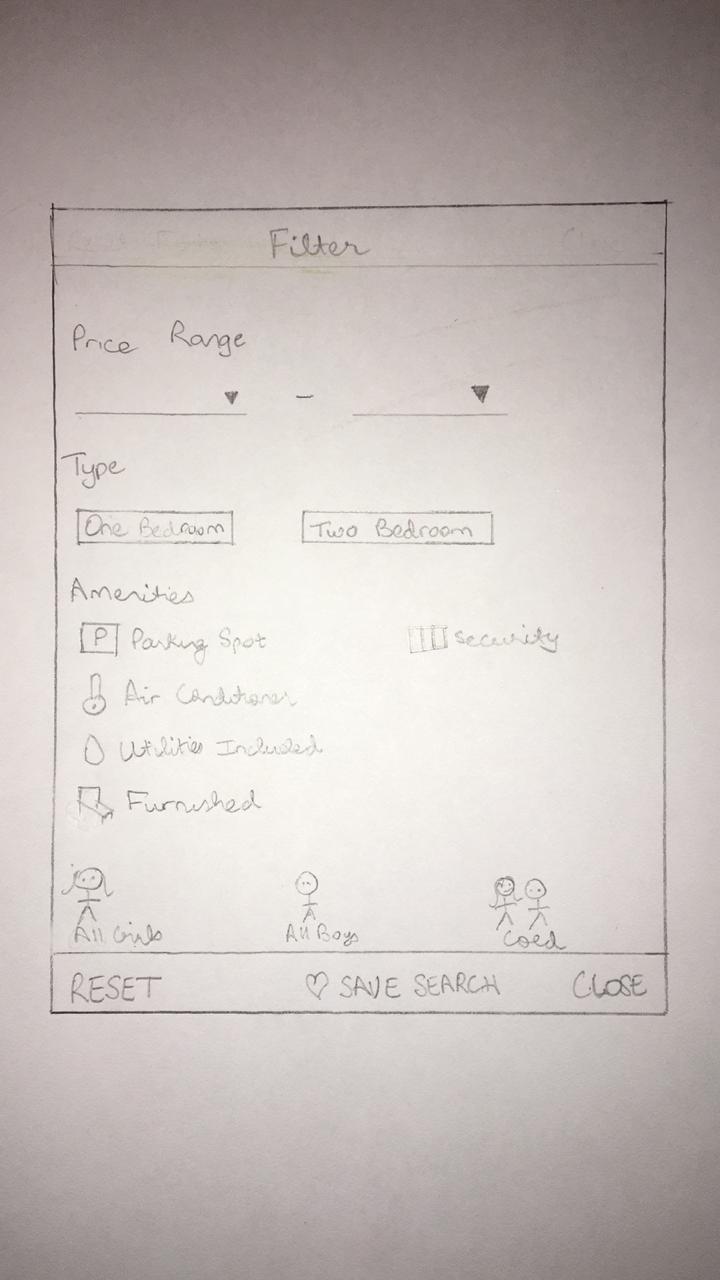 Filter
Price Range
–
Type
One Bedroom
Two Bedroom
Amenities
P Parking Spot
Security
Air Conditioner
Utilities Included
Furnished
All Girls
All Boys
Coed
RESET
♡ SAVE SEARCH
CLOSE